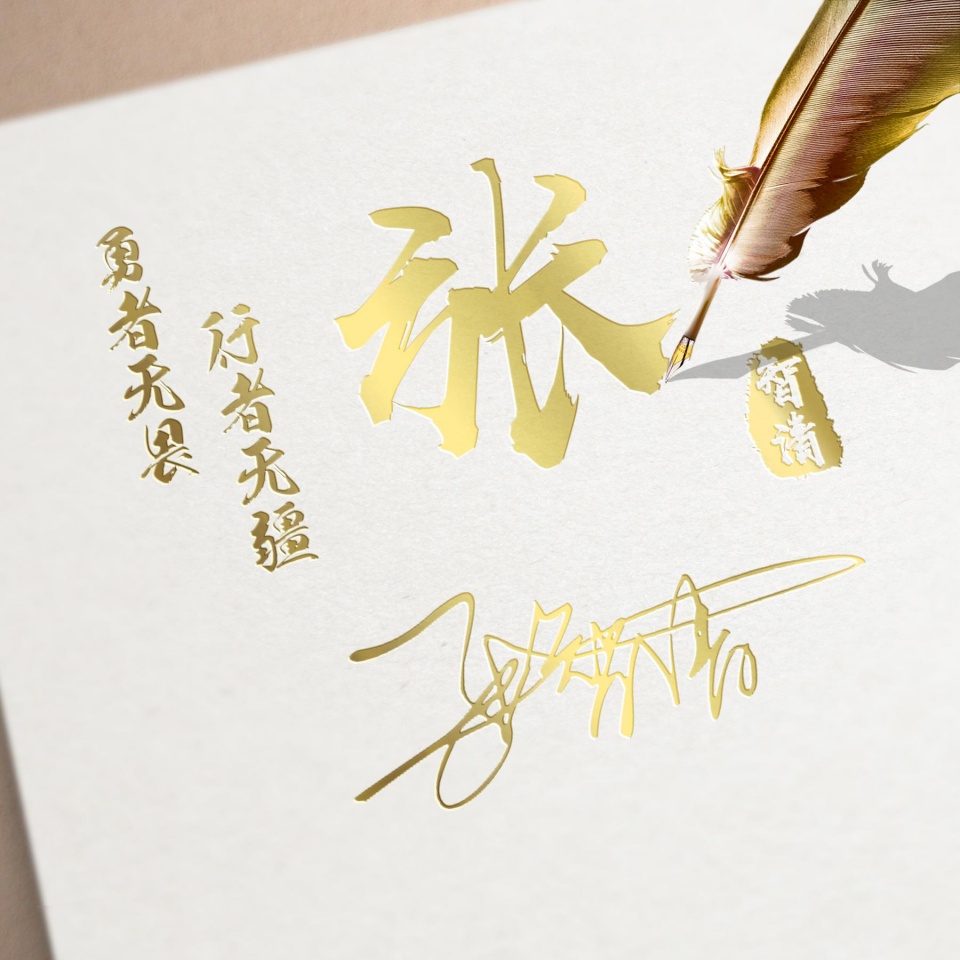 勇者无畏
行者无疆
张
智请